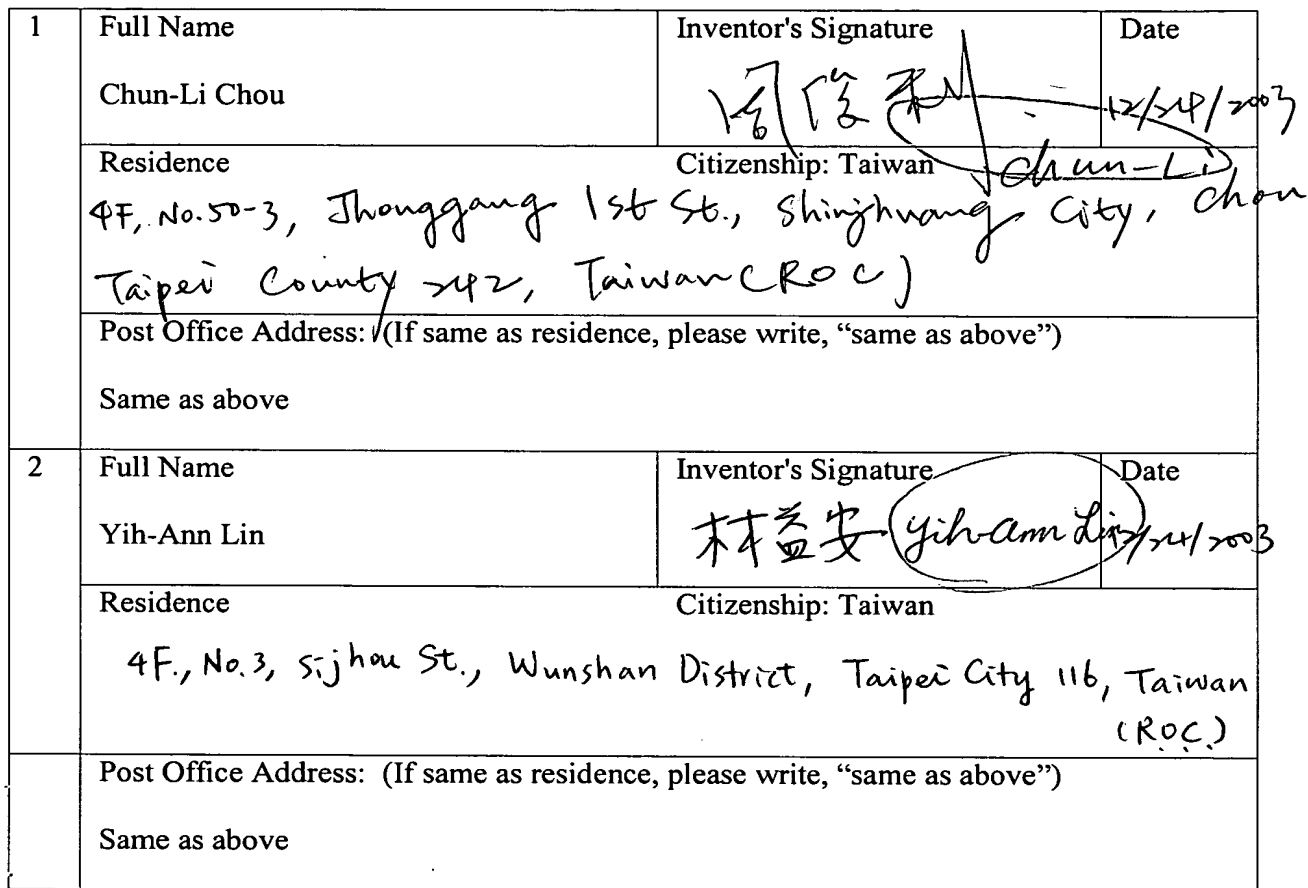 1 Full Name Inventor's Signature Date
Chun-Li Chou 周俊利 12/24/2003
Chun-Li Chou
Residence Citizenship: Taiwan
4F, No.50-3, Jhonggang 1st St., Shinjhuang City,
Taipei County 242, Taiwan (ROC)
Post Office Address: (If same as residence, please write, “same as above”)
Same as above
2 Full Name Inventor's Signature Date
Yih-Ann Lin 林益安 Yih-Ann Lin 12/24/2003
Residence Citizenship: Taiwan
4F., No.3, Sijhou St., Wunshan District, Taipei City 116, Taiwan
(R.O.C.)
Post Office Address: (If same as residence, please write, “same as above”)
Same as above